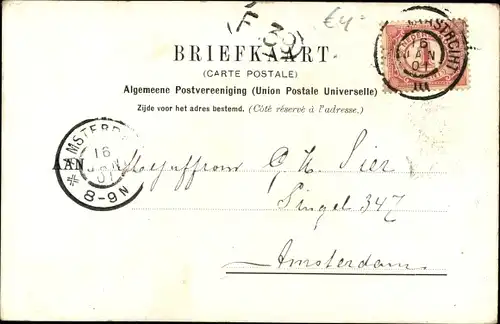 €4-
BRIEFKAART
(CARTE POSTALE)
Algemeene Postvereeniging (Union Postale Universelle)
Zijde voor het adres bestemd. (Côté réservé à l'adresse.)
MAASTRICHT
JAN
01
III
AMSTERDAM
16
JAN
01
8-9N
AAN Mejuffrouw G. H. Sier
Singel 347
Amsterdam.